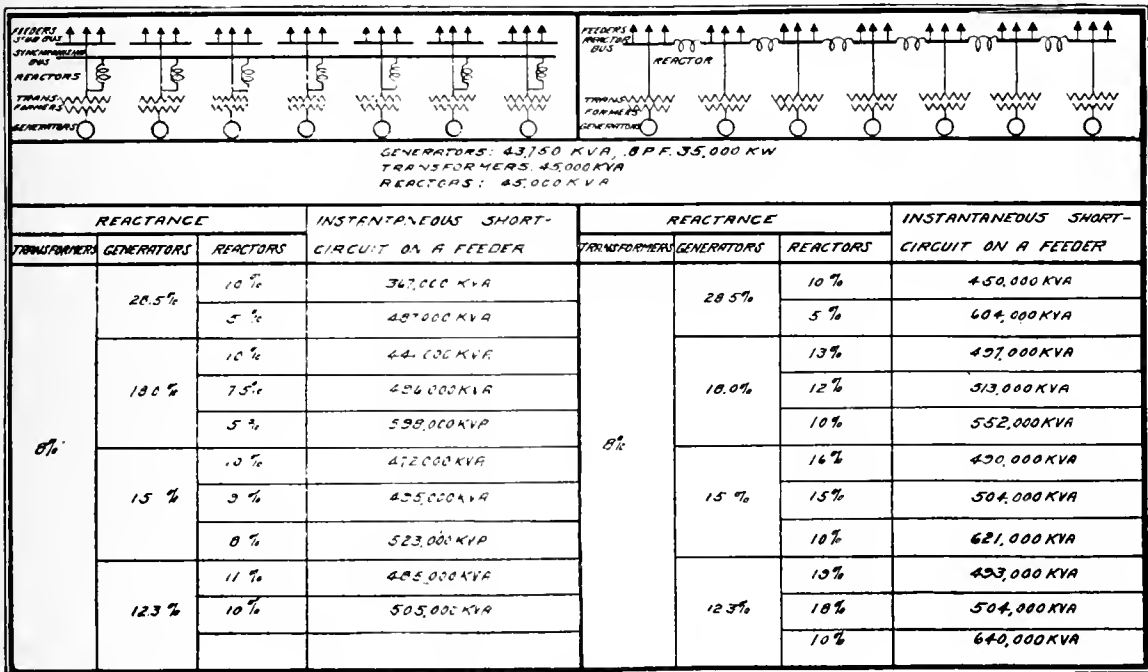 FEEDERS
STUB BUS
SYNCHRONIZING
BUS
REACTORS
TRANS-
FORMERS
GENERATORS
FEEDERS
REACTOR
BUS
REACTOR
TRANS-
FORMERS
GENERATORS
GENERATORS: 43,750 KVA, .8 P.F. 35,000 KW
TRANSFORMERS. 45,000 KVA
REACTORS: 45,000 KVA
REACTANCE
INSTANTANEOUS SHORT-
CIRCUIT ON A FEEDER
TRANSFORMERS GENERATORS REACTORS
8%
28.5%
10% 367,000 KVA
5% 487,000 KVA
18.0%
10% 441,000 KVA
7.5% 494,000 KVA
5% 598,000 KVA
15%
10% 472,000 KVA
9% 495,000 KVA
8% 523,000 KVA
12.3%
11% 485,000 KVA
10% 505,000 KVA
REACTANCE
INSTANTANEOUS SHORT-
CIRCUIT ON A FEEDER
TRANSFORMERS GENERATORS REACTORS
8%
28.5%
10% 450,000 KVA
5% 604,000 KVA
18.0%
13% 497,000 KVA
12% 513,000 KVA
10% 552,000 KVA
15%
16% 490,000 KVA
15% 504,000 KVA
10% 621,000 KVA
12.3%
19% 493,000 KVA
18% 504,000 KVA
10% 640,000 KVA